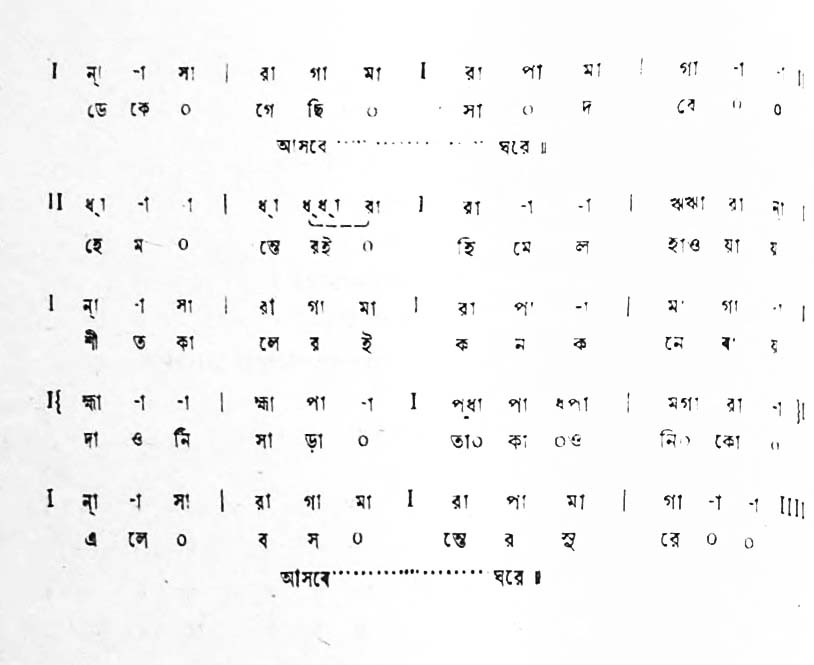 I ন্া -া সা | রা গা মা I রা পা মা | গা -া -া II
ডে কে ০ গে ছি ০ সা ০ দ রে ০ ০
আসবে ..................... ঘরে ॥
II ধ্া -া -া | ধ্া ধ্ধ্া রা I রা -া -া | ঋঋা রা ন্া |
হে ম ০ ন্তে রই ০ হি মে ল হাও য়া য়
I ন্া -া সা | রা গা মা I রা পা -া | মা গা -া |
শী ত কা লে র ই ক ন ক নে বা য়
I{ হ্মা -া -া | হ্মা পা -া I পধা পা ধপা | মগা রা -া }I
দা ও নি সা ড়া ০ তা০ কা ০ও নি০ কো ০
I ন্া -া সা | রা গা মা I রা পা মা | গা -া -া IIII
এ লে ০ ব স ০ ন্তে র সু রে ০ ০
আসবে..................... ঘরে ॥